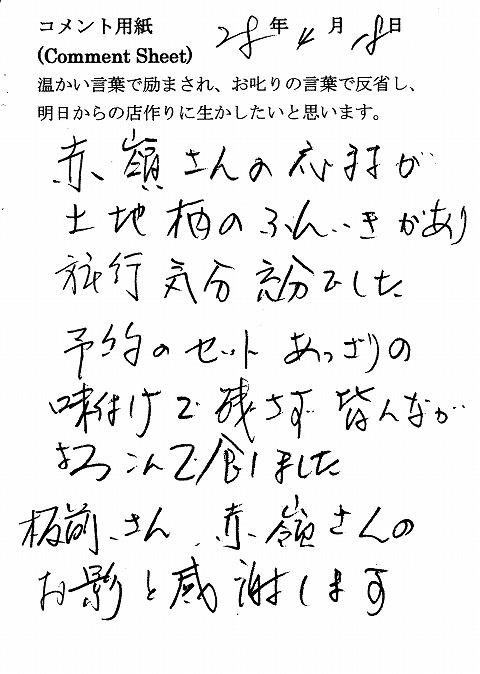 コメント用紙 28年4月18日
(Comment Sheet)
温かい言葉で励まされ、お叱りの言葉で反省し、
明日からの店作りに生かしたいと思います。
赤嶺さんの なまりが
土地柄のふんいきがあり
旅行気分充分でした
予約のセットあっさりの
味付けで残さず皆んなが
よろこんで食しました
板前さん、赤嶺さんの
お影と感謝します